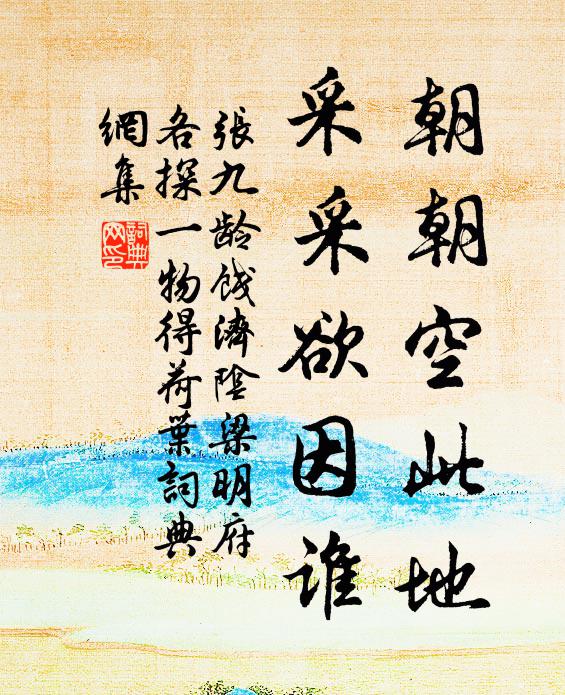 朝朝空此地
采采欲因谁
張九龄餞濟陰梁明府
各探一物得荷葉詞典
網集
詞典网印